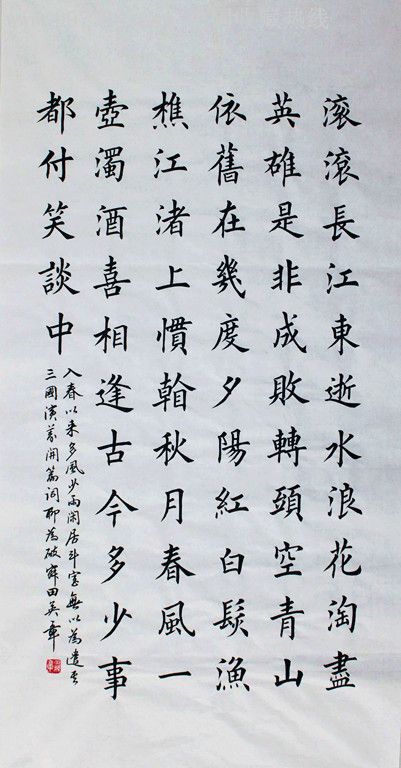 滚滾長江東逝水浪花淘盡
英雄是非成敗轉頭空青山
依舊在幾度夕陽紅白髮漁
樵江渚上慣看秋月春風一
壺濁酒喜相逢古今多少事
都付笑談中
入春以来多風少雨閑居斗室無以為遣
三國演義開篇詞聊為破寂田英章
热线